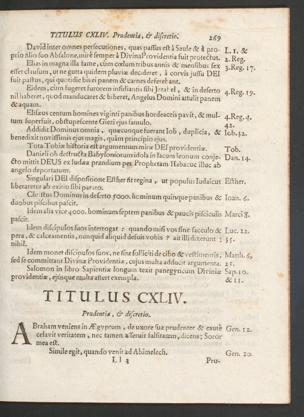 TITULUS CXLIV. Prudentia, & discretio. 269
David inter omnes persecutiones, quas passus est à Saule & à pro- L. 1. &
prio filio suo Absalone, mirè semper à Divina Providentia fuit protectus. 2. Reg.
Elias in magna illa fame, cùm cœlum tribus annis & mensibus sex 3. Reg. 17.
esset clausum, ut ne gutta quidem pluviæ decideret, à corvis jussu DEI
fuit pastus, qui quotidie bis ei panem & carnes deferebant.
Eidem, cùm fugeret furorem insidiantis sibi Jezabel, & in deserto 4. Reg. 19.
nil haberet, quod manducaret & biberet, Angelus Domini attulit panem
& aquam.
Eliseus centum homines viginti panibus hordeaceis pavit, & mul- 4. Reg. 4.
tum superfuit, obstupescente Giezi ejus famulo. 42.
Addidit Dominus omnia, quæcunque fuerant Job, duplicia, & Iob. 42.
benedixit novissimis ejus magis, quàm principio ejus.
Tota Tobiæ historia est argumentum miræ DEI providentiæ. Tob.
Danieli ob destructa Babyloniorum idola in lacum leonum conje- Dan. 14.
cto mirè DEUS ex Iudæa prandium per Prophetam Habacuc illuc ab
angelo deportatum.
Singulari DEI dispositione Esther fit regina, ut populus Iudaicus Esther.
liberaretur ab exitio sibi parato.
Christus Domini in deserto 5000. hominum quinque panibus & Ioan. 6.
duobus piscibus pascit.
Idem alia vice 4000. hominum septem panibus & paucis pisciculis Marci 8.
pascit.
Idem discipulos suos interrogat: quando misi vos sine sacculo & Luc. 22.
pera, & calceamentis, nunquid aliquid defuit vobis? at illi dixerunt: 35.
nihil.
Idem monet discipulos suos, ne sint solliciti de cibo & vestimentis, Matth. 6.
sed se committant Divinæ Providentiæ, cujus multa adducit argumenta. 25.
Salomon in libro Sapientiæ longum texit panegyricum Divinæ Sap. 10.
providentiæ, ejusque multa affert exempla. & 11.
TITULUS CXLIV.
Prudentia, & discretio.
Abraham veniens in Ægyptum, de uxore sua prudenter & cautè Gen. 12.
celavit veritatem, nec tamen asseruit falsitatem, dicens; Soror
mea est.
Simile egit, quando venit ad Abimelech. Gen. 20.
Ll 3 Pru-